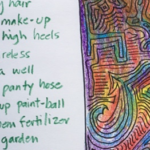 hair
make-up
high heels
a well
panty hose
up paint-ball
fertilizer
garden